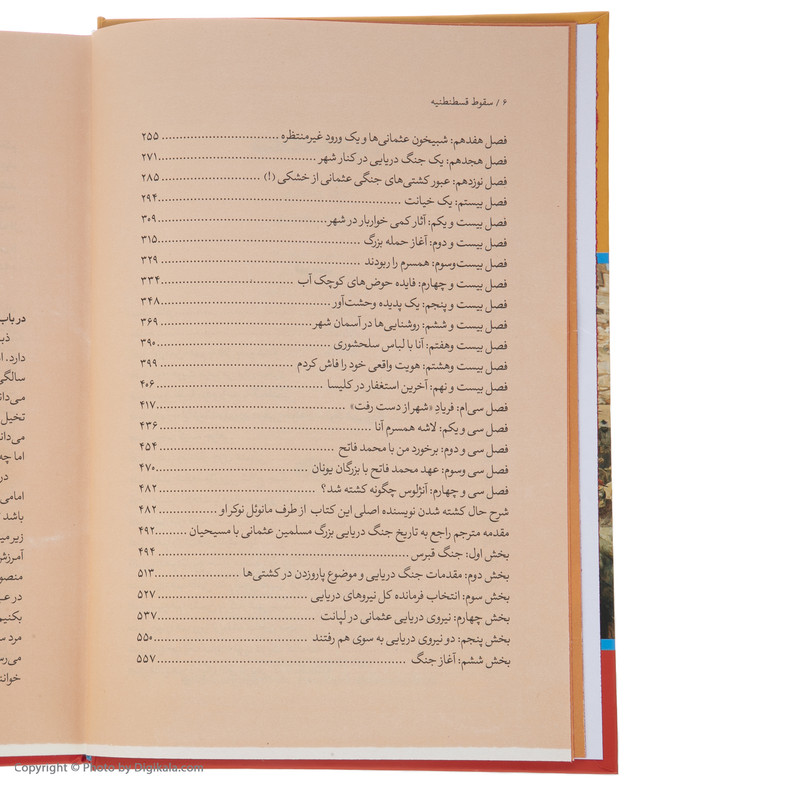 ۶ / سقوط قسطنطنیه
فصل هفدهم: شبیخون عثمانی‌ها و یک ورود غیرمنتظره ............................ ۲۵۵
فصل هجدهم: یک جنگ دریایی در کنار شهر ...................................... ۲۷۱
فصل نوزدهم: عبور کشتی‌های جنگی عثمانی از خشکی (!) ........................ ۲۸۵
فصل بیستم: یک خیانت ...................................................... ۲۹۴
فصل بیست و یکم: آثار کمی خواربار در شهر .................................. ۳۰۹
فصل بیست و دوم: آغاز حمله بزرگ .......................................... ۳۱۵
فصل بیست‌وسوم: همسرم را ربودند .......................................... ۳۲۹
فصل بیست و چهارم: فایده حوض‌های کوچک آب ................................ ۳۳۴
فصل بیست و پنجم: یک پدیده وحشت‌آور ...................................... ۳۴۸
فصل بیست و ششم: روشنایی‌ها در آسمان شهر .................................. ۳۶۹
فصل بیست وهفتم: آنا با لباس سلحشوری ...................................... ۳۹۰
فصل بیست وهشتم: هویت واقعی خود را فاش کردم .............................. ۳۹۹
فصل بیست و نهم: آخرین استغفار در کلیسا .................................... ۴۰۶
فصل سی‌ام: فریادِ «شهر از دست رفت» ........................................ ۴۱۷
فصل سی و یکم: لاشه همسرم آنا .............................................. ۴۳۶
فصل سی و دوم: برخورد من با محمد فاتح .................................... ۴۵۴
فصل سی وسوم: عهد محمد فاتح با بزرگان یونان ................................ ۴۷۰
فصل سی و چهارم: آنژلوس چگونه کشته شد؟ .................................... ۴۸۲
شرح حال کشته شدن نویسنده اصلی این کتاب از طرف مانوئل نوکر او .............. ۴۸۲
مقدمه مترجم راجع به تاریخ جنگ دریایی بزرگ مسلمین عثمانی با مسیحیان ........ ۴۹۲
بخش اول: جنگ قبرس ........................................................ ۴۹۴
بخش دوم: مقدمات جنگ دریایی و موضوع پاروزدن در کشتی‌ها .................... ۵۱۳
بخش سوم: انتخاب فرمانده کل نیروهای دریایی ................................ ۵۲۷
بخش چهارم: نیروی دریایی عثمانی در لپانت .................................. ۵۳۷
بخش پنجم: دو نیروی دریایی به سوی هم رفتند ................................ ۵۵۰
بخش ششم: آغاز جنگ ........................................................ ۵۵۷
در باب
دارد. ا
سالگی
می‌دا
تخیل
می‌دان
اما چه
در
امامی
باشد
زیر می
آمرزش
منصو
در عـ
بکنیم
مرد س
می‌رس
خوانـ
Copyright © Photo by Digikala.com